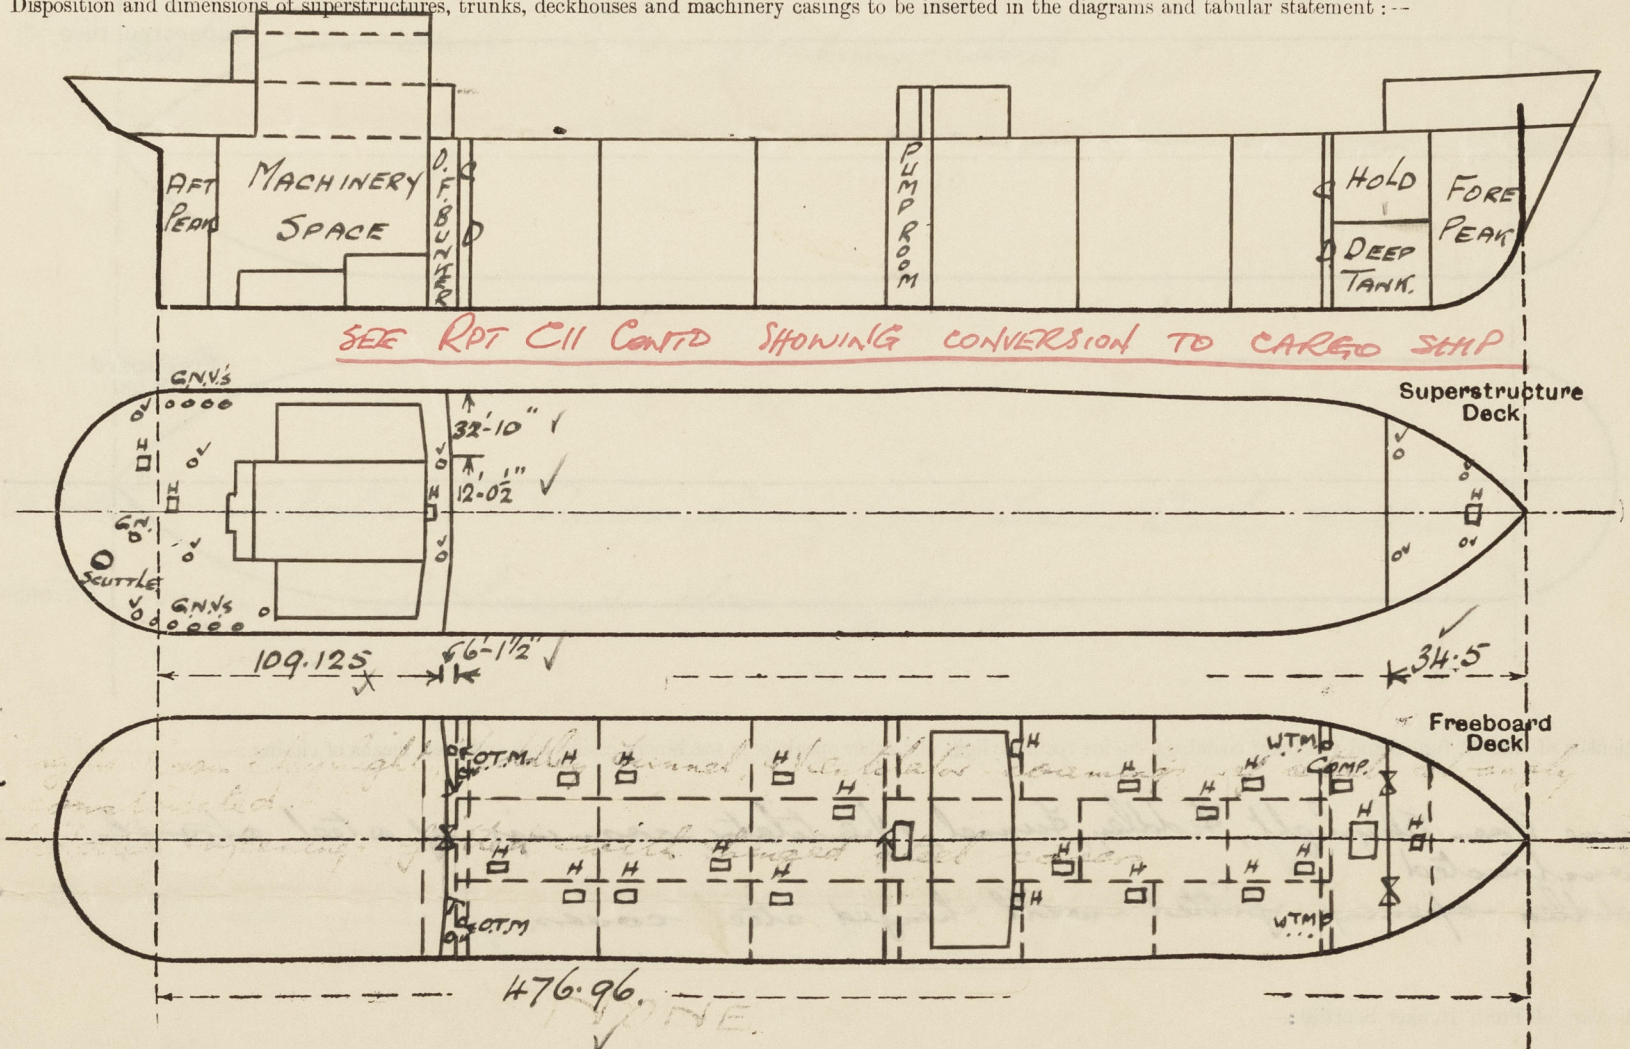 Disposition and dimensions of superstructures, trunks, deckhouses and machinery casings to be inserted in the diagrams and tabular statement :--
AFT PEAK
MACHINERY SPACE
O.F. BUNKER
C D
PUMP ROOM
C D
HOLD
DEEP TANK.
FORE PEAK
SEE RPT C11 CONTD SHOWING CONVERSION TO CARGO SHIP
Superstructure Deck
G.N.V.'s
V
H
V
H
G.N.
V
SCUTTLE
V
G.N.V.s
32'-10" ✓
V
12'-0½" ✓
H
V
V
V
H
V
V
109.125
6'-1½" ✓
34.5
Freeboard Deck
O.T.M.
H H H H
H
H H
H
W.T.M.
COMP.
H H
H H H H H
H H H H
H H
O.T.M
W.T.M
476.96.
NONE